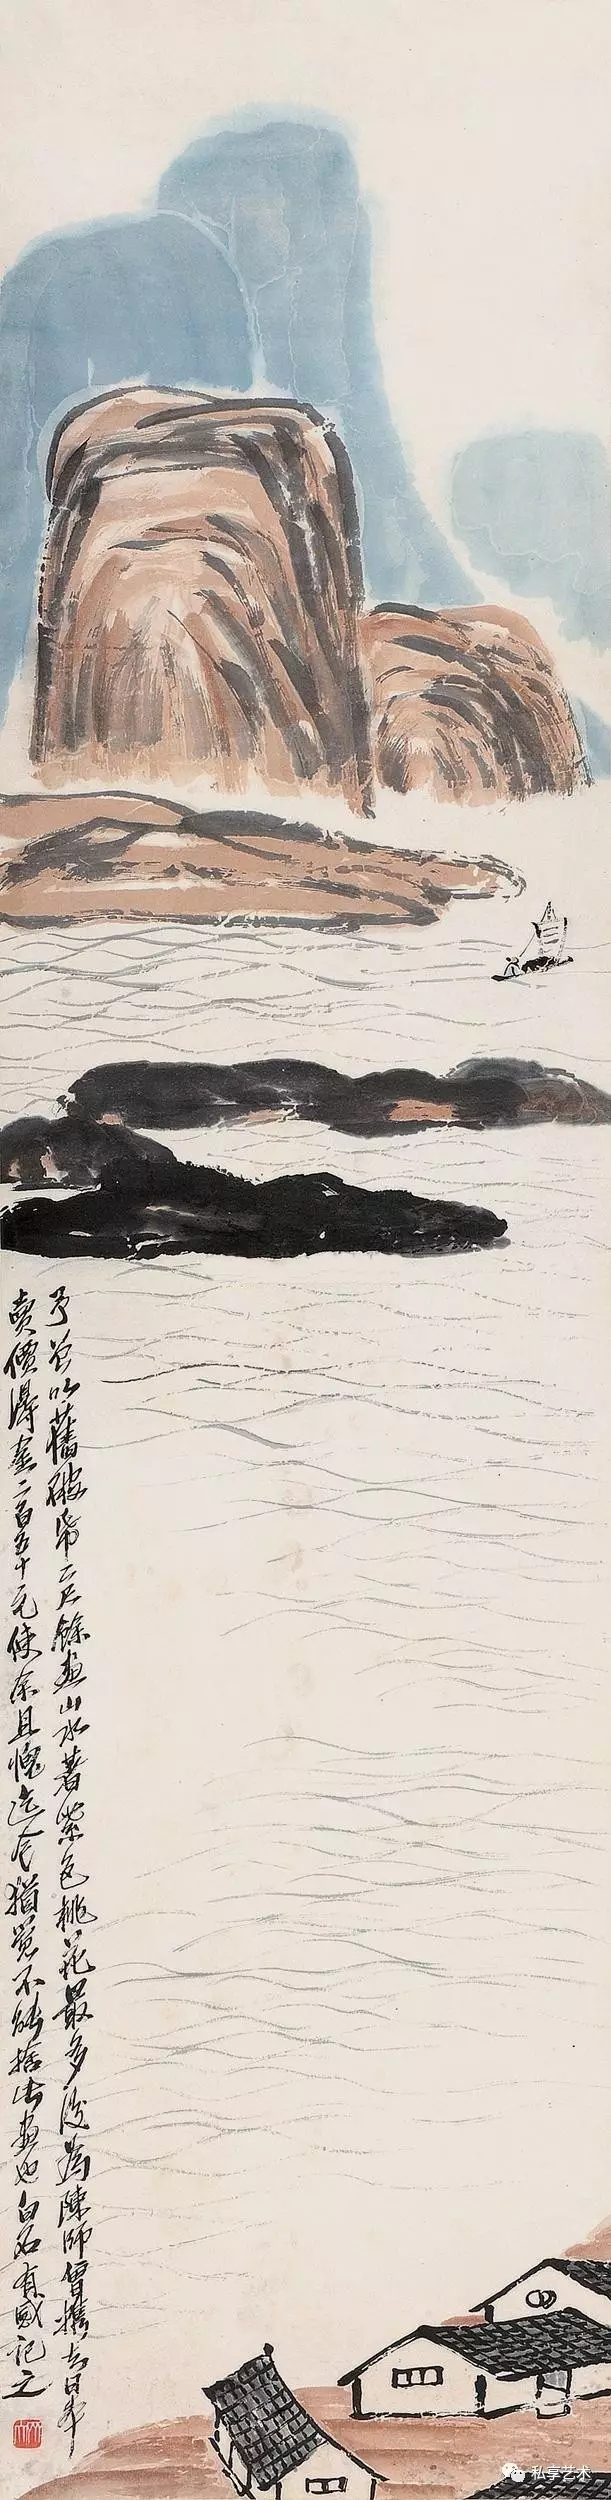 予曾以舊破布三尺餘畫山水著紫色桃花最多後為陳師曾攜去日本
賣價得金二百五十元使余且愧迄今猶覺不能捨此畫也白石有感記之
私享艺术